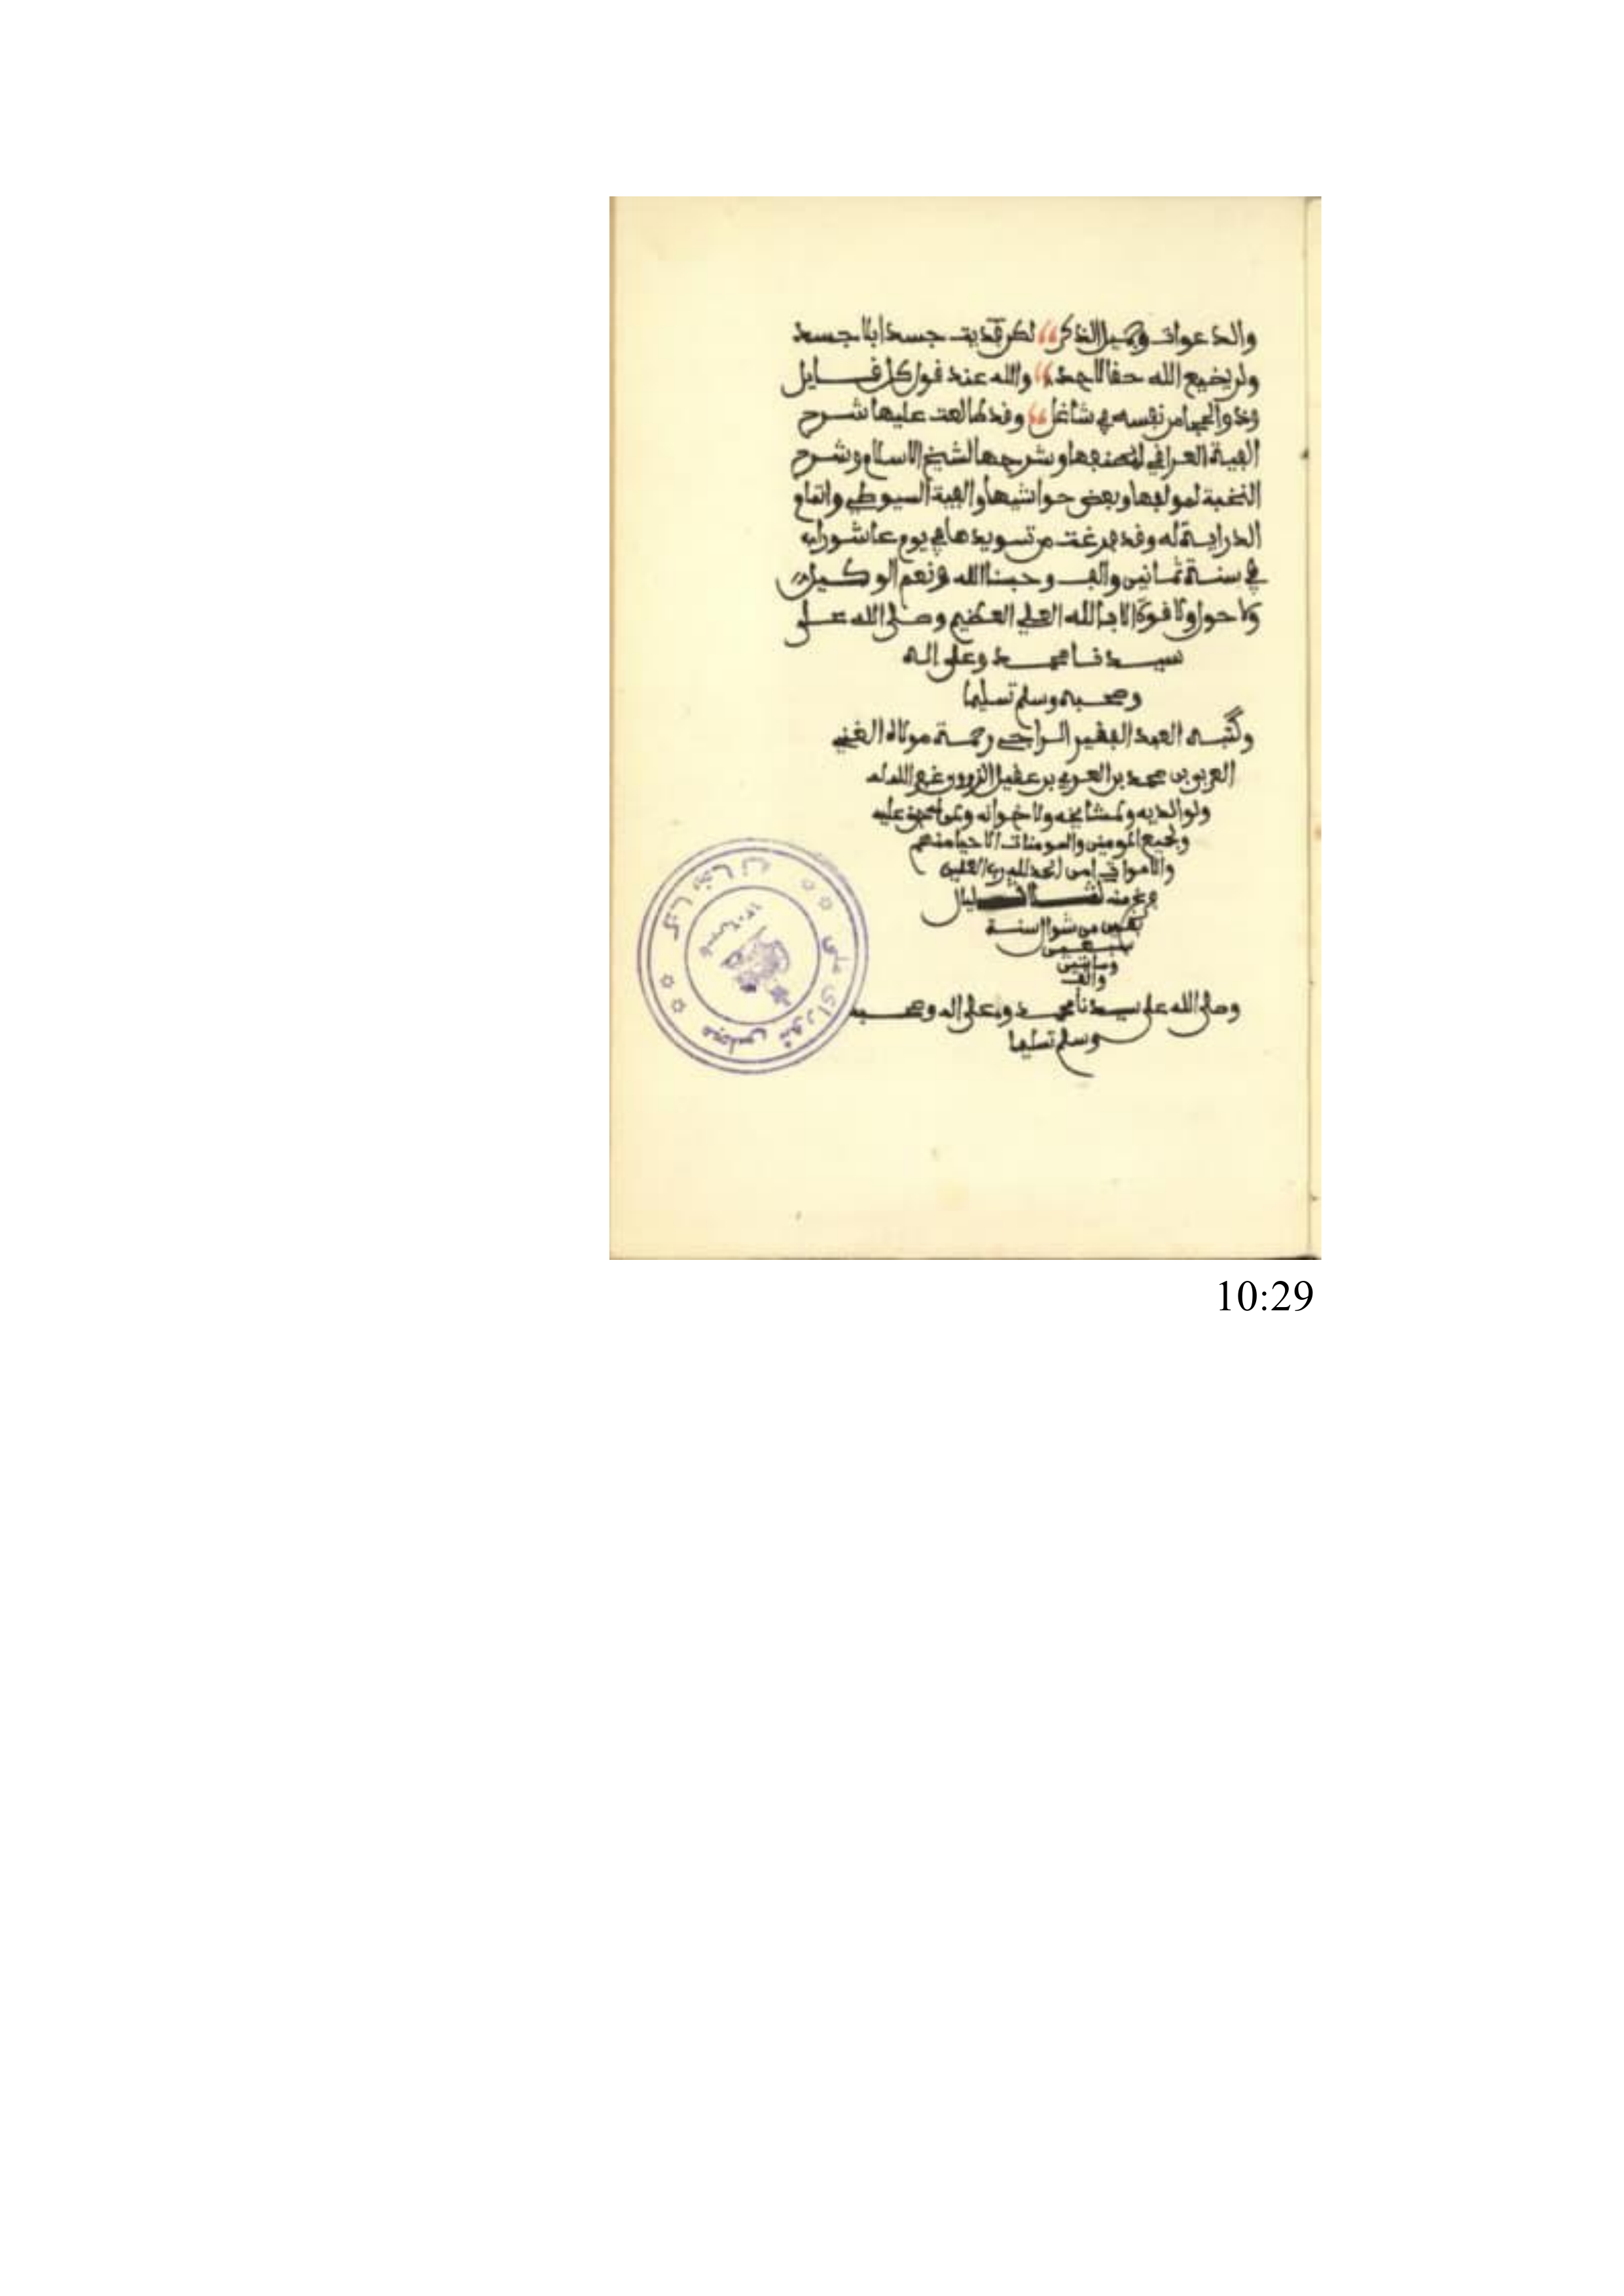 والدعوات وجميل الذكر لكن قد بت جسدا بلا جسد
ولن يضيع الله حقا لاحد والله عند قول كل قايل
وذو الحجا من نفسه في شاغل وقد طالعت عليها شرح
الفية العراقي لمصنفها وشرحها لشيخ الاسلام وشرح
النخبة لمولفها وبعض حواشيها والفية السيوطي واتمام
الدراية له وقد فرغت من تسويدها في يوم عاشوراء
في سنة ثمانين والف وحسبنا الله ونعم الوكيل
ولا حول ولا قوة الا بالله العلي العظيم وصلى الله على
سيدنا محمد وعلى اله
وصحبه وسلم تسليما
وكتبه العبد الفقير الراجي رحمة مولاه الغني
العربي بن محمد بن العربي بن عقيل الزروو غفر الله له
ولوالديه ولمشايخه ولاخوانه ولمن له حق عليه
ولجميع المومنين والمومنات الاحيا منهم
والاموات امين الحمد لله رب العلمين
فرغ منه ليال
بقين من شوال سنة
سبعين
ومايتين
والف
وصلى الله على سيدنا محمد وعلى اله وصحبه
وسلم تسليما
مجلس شوراى ملى
10:29